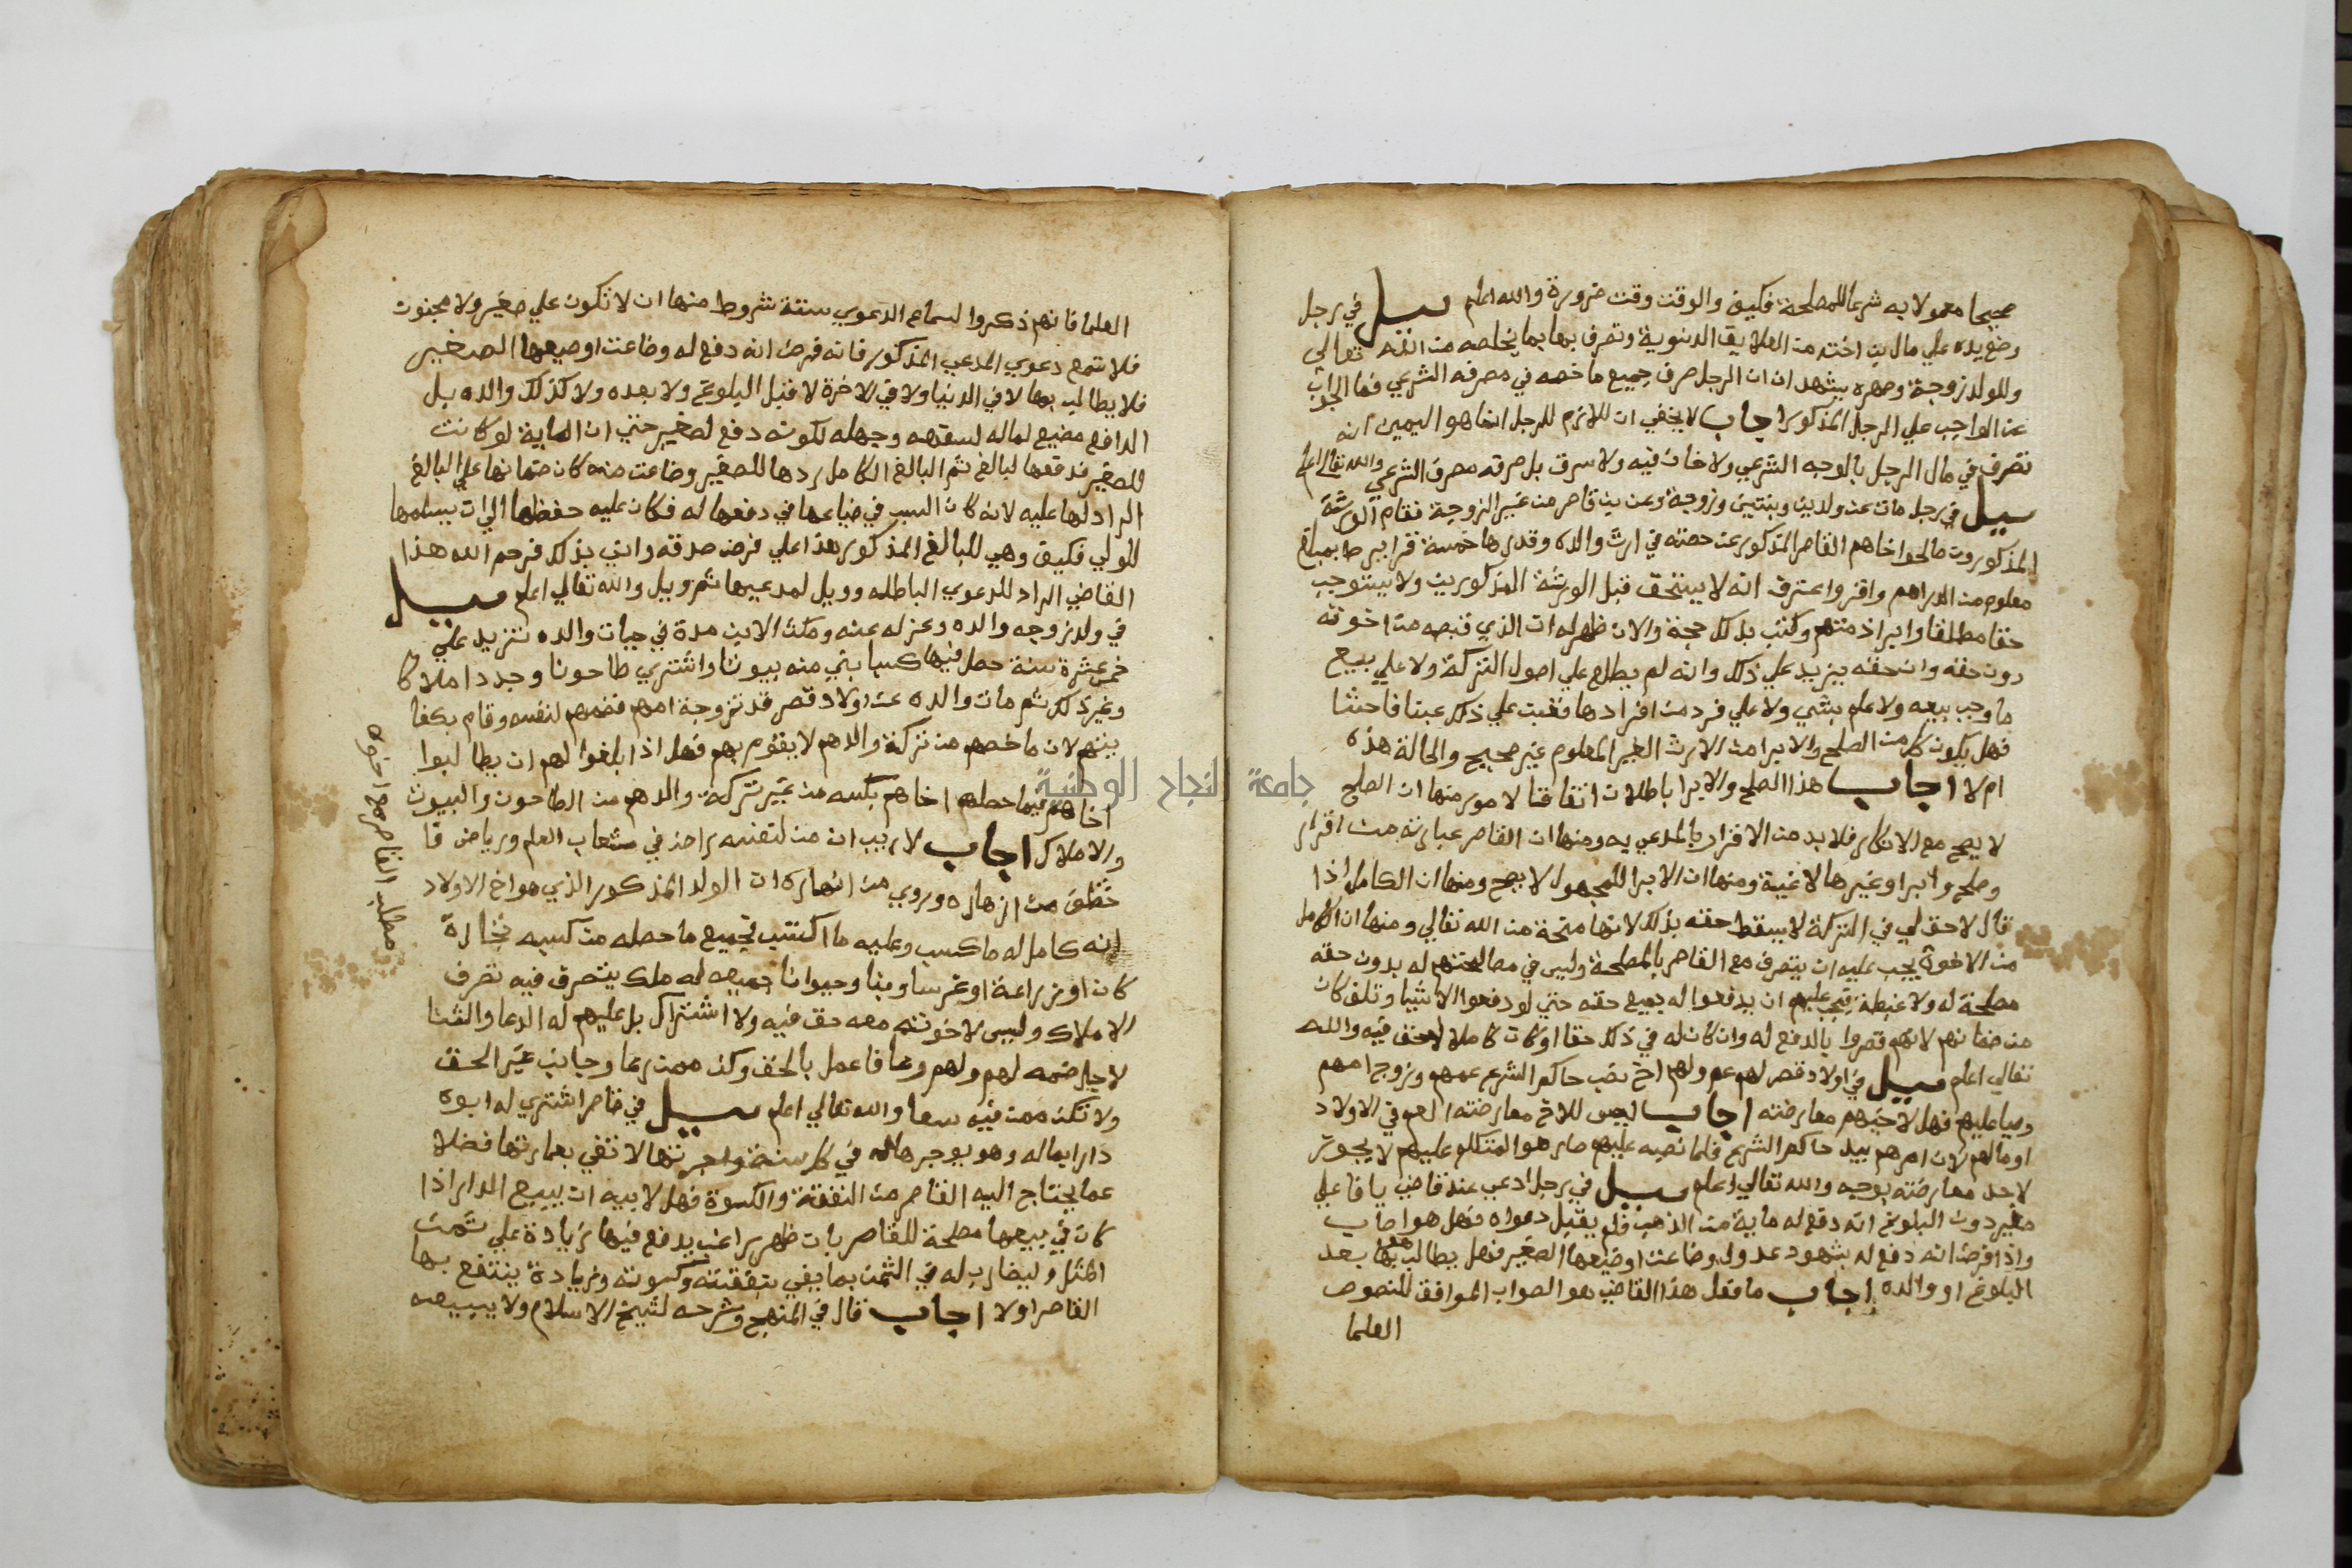 صحيحا معمولا به شرعا للمصلحة فكيف والوقت وقت ضرورة والله اعلم سيل في رجل
وضع يده علي مال بن اخته من العلايق الدنيوية وتصرف بها بما يخلصه من الله تعالي
وللولد زوجة وصهره يشهد ان ان الرجل صرف جميع ما خصه في مصرفه الشرعي فما الجواب
عن الواجب علي الرجل المذكور اجاب لا يخفي ان اللازم للرجل انما هو اليمين انه
تصرف في مال الرجل بالوجه الشرعي ولا خان فيه ولا سرق بل صرفه مصرف الشرعي والله تعالي اعلم
سيل في رجل مات عن ولدين وبنتين وزوجة وعن بن قاصر من غير الزوجة فقام الورثة
المذكورون صالحوا اخاهم القاصر المذكور عن حصته في ارث والده وقدرها خمسة قراريط بمبلغ
معلوم من الدراهم واقر واعترف انه لا يستحق قبل الورثة المذكورين ولا يستوجب
حقا مطلقا وابراذمتهم وكتب بذلك حجة والان ظهر له ان الذي قبضه من اخوته
دون حقه وان حقه يزيد علي ذلك وانه لم يطلع علي اصول التركة ولا علي بيع
ما وجب بيعه ولا علم بشي ولا علي فرد من افرادها فغبن علي ذلك غبنا فاحشا
فهل يكون كل من الصلح والابرا من الارث الغير المعلوم غير صحيح والحالة هذه
ام لا اجاب هذا الصلح والابرا باطلان اتفاقا لامور منها ان الصلح
لا يصح مع الانكار فلا بد من الاقرار بالمدعي به ومنها ان القاصر عبارته من اقرار
وصلح وابرا وغيرها لاغية ومنها ان الابرا للمجهول لا يصح ومنها ان الكامل اذا
قال لا حق لي في التركة لا يسقط حقه بذلك لانها منحة من الله تعالي ومنها ان الكامل
من الاخوة يجب عليه ان يتصرف مع القاصر بالمصلحة وليس في مصالحتهم له بدون حقه
مصلحة له ولا غبطة فيجب عليهم ان يدفعوا له جميع حقه حتي لو دفعوا الاشيا وتلف كان
من ضمانهم لانهم قصروا بالدفع له وان كان له في ذلك حقا او كان كاملا لاحق فيه والله
تعالي اعلم سيل في اولاد قصر لهم عم ولهم اخ نصب حاكم الشرع عمهم وزوج امهم
وصيا عليهم فهل لاخيهم معارضته اجاب ليس للاخ معارضته العم في الاولاد
او مالهم لان امرهم بيد حاكم الشرع فلما نصبه عليهم صار هو المتكلم عليهم لا يجوز
لاحد معارضته بوجه والله تعالي اعلم سيل في رجل ادعي عند قاضي يافا علي
صغير دون البلوغ انه دفع له ماية من الذهب فلم يقبل دعواه فهل هو اصاب
واذا فرض انه دفع له بشهود عدول وضاعت او ضيعها الصغير فهل يطالب بها بعد
البلوغ او والده اجاب ما فعل هذا القاضي هو الصواب الموافق للنصوص
العلما
العلما فانهم ذكروا لسماع الدعوي ستة شروط منها ان لا تكون علي صغير ولا مجنون
فلا تسمع دعوي المدعي المذكور فانه فرض انه دفع له وضاعت او ضيعها الصغير
فلا يطالب بها لا في الدنيا ولا في الاخرة لا قبل البلوغ ولا بعده ولا كذلك والده بل
الدافع مضيع لماله لسفهه وجهله لكونه دفع لصغير حتي ان الماية لو كانت
للصغير فدفعها لبالغ ثم البالغ الكامل ردها للصغير وضاعت منه كان ضمانها علي البالغ
الراد لها عليه لانه كان السبب في ضياعها في دفعها له فكان عليه حفظها الي ان يسلمها
للولي فكيف وهي للبالغ المذكور هذا علي فرض صدقه واني بذلك فرحم الله هذا
القاضي الراد للدعوي الباطله وويل لمدعيها ثم ويل والله تعالي اعلم سيل
في ولد زوجه والده وعزله عنه ومكث الابن مدة في حيات والده تزيد علي
خمس عشرة سنة حصل فيها كسبا بني منه بيوتا واشتري طاحونا وجدد املاكا
وغير ذلك ثم مات والده عن اولاد قصر قد تزوجة امهم فضمهم لنفسه وقام بكفا
يتهم لان ما خصهم من تركة والدهم لا يقوم بهم فهل اذا بلغوا لهم ان يطالبوا
اخاهم فيما حصلهم اخاهم بكسبه من غير تركة والدهم من الطاحون والبيوت
والاملاك اجاب لا ريب ان من لنفسه راحة في شعاب العلم ورياض قا
قطف من ازهاره وروي من انهاره ان الولد المذكور الذي هو اخ الاولاد
انه كامل له ما كسب وعليه ما اكتسب فجميع ما حصله من كسبه تجارة
كان او زراعة او غرسا وبنا وحيوانا جميعه له ملك يتصرف فيه تصرف
الاملاك وليس لاخوته معه حق فيه ولا اشتراك بل عليهم له الدعا والثنا
لاجل ضمه لهم ولهم وعا فاعمل بالحق وكن ممن رعا وجانب غير الحق
ولا تكن ممن فيه سعا والله تعالي اعلم سيل في قاصر اشتري له ابوه
دارا بماله وهو يوجرها له في كل سنة واجرتها لا تفي بعمارتها فضلا
عما يحتاج اليه القاصر من النفقة والكسوة فهل لابيه ان يبيع الدار اذا
كان في بيعها مصلحة للقاصر بان ظهر راغب يدفع فيها زيادة علي ثمن
المثل وليضارب له في الثمن بما يفي بنفقته وكسوته وزيادة ينتفع بها
القاصر اولا اجاب قال في المنهج وشرحه لشيخ الاسلام ولا يبيعه
مطلب القاصر مع اخوه
جامعة النجاح الوطنية